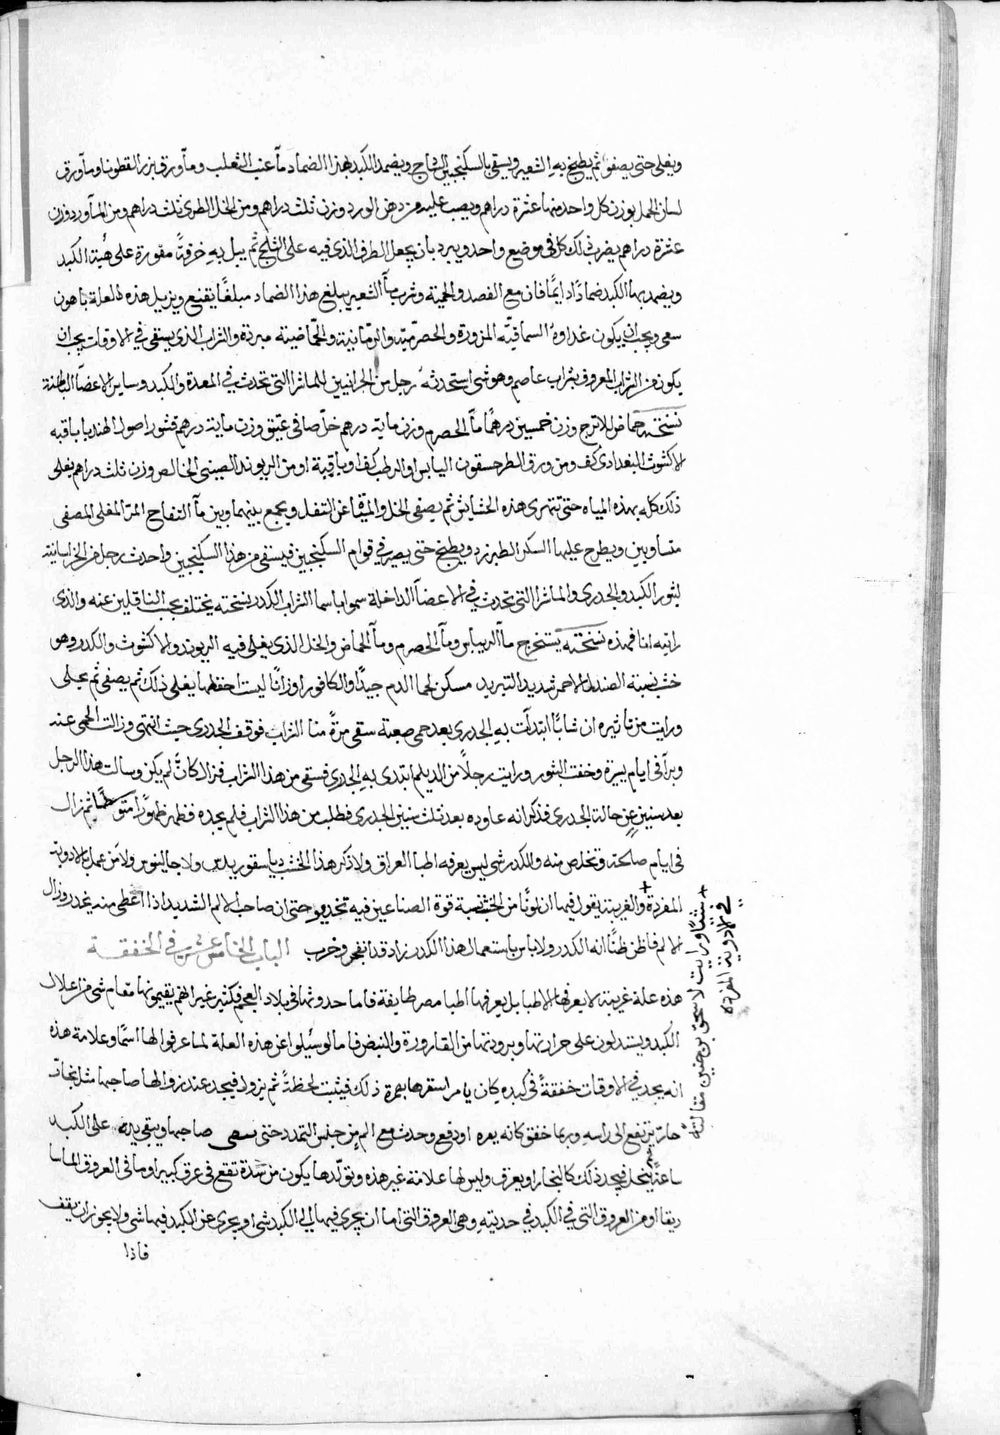 ويغلى حتى يصفو ثم يطبخ به الشعير ويسقى بالسكنجبين الساذج ويضمد الكبد بهذا الضماد مآ عنب الثعلب ومآ ورق بزر القطونا ومآ ورق
لسان الحمل بوزن كل واحد منها عشرة دراهم ويصب عليه من دهن الورد وزن ثلث دراهم ومن الخل الطرى ثلث دراهم ومن المآورد وزن
عشرة دراهم يضرب ذلك كله فى موضع واحد ويبرد بان يجعل الظرف الذى فيه على الثلج ثم يبل به خرقةً مقورة على هيئة الكبد
ويضمد بها الكبد ضمادًا دايمًا فان مع الفصد والحمية وشرب مآ الشعير يبلغ هذا الضماد مبلغًا يقنع ويزيل هذه العلة باهون
سعى ويجب ان يكون غداوه السماقية المزورة والحصرمية والرمانية والحماضية مبردة والشراب الذى يسقى فى الاوقات يجب ان
يكون من الشراب المعروف بشراب عاصم وهو شى استحدثه رجل من الحرانيين للماشرا التى تحدث فى المعدة والكبد وساير الاعضآ الباطنة
نسخته حماض الاترج وزن خمسين درهمًا مآ الحصرم وزن ماية درهم خل صافى عتيق وزن ماية درهم قشور اصول الهندبا باقة
الاكشوث البغدادى كف ومن ورق الطرحشقون اليابس او الرطب كف او باقة ومن الريوند الصينى الخالص وزن ثلث دراهم يغلى
ذلك كله بهذه المياه حتى تتهرى هذه الحشايش ثم يصفى الخل والميآ عن الثفل ويجمع بينهما وبين مآ التفاح المز المغلى المصفى
متساويين ويطرح عليها السكر الطبرزد ويطبخ حتى يصير فى قوام السكنجبين فيسقى من هذا السكنجبين واحدث رجل من الخراسانية
لبثور الكبد والجدرى والماشرا التى تحدث فى الاعضآ الداخلة سموا باسم الشراب الكدر نسخته يختلف بحسب الناقلين عنه والذى
رايته انا فهذه نسخته يستخرج مآ الريباس ومآ الحصرم ومآ الحماض والخل الذى يغلى فيه الريوند والاكشوث والكدر وهو
خشب يشبه الصندل الاحمر شديد التبريد مسكن لحما الدم جيدًا والكافور اوزانًا ليست احفظها يغلى ذلك ثم يصفى ثم يحلى
ورايت من تاثيره ان شابًا ابتدأت به الجدرى بعد حمى صعبة سقى مرةً منا الشراب فوقف الجدرى حيث انتهى وزالت الحمى عنه
وبرآ فى ايام يسيرة وخفت البثور ورايت رجلاً من الديلم ابتدى به الجدرى فسقى من هذا الشراب فزال كان لم يكن وسالت هذا الرجل
بعد سنين عن حالة الجدرى فذكر انه عاوده بعد ثلث سنين الجدرى فطلب من هذا الشراب فلم يجده فظهر ظهورًا متوسطًا ثم زال
فى ايام صالحة وتخلص منه والكدر شى ليس يعرفه اطبا العراق ولا ذكر هذا الخشب دياسقوريدس ولا جالينوس ولا من عمل بالادوية
المفردة والغريبة يقول فيها ان لونًا من الخشب قوة الصناعين فيه تخدير حتى ان صاحب الالم الشديد اذا اعطى منه يخدر وزال
الالم فاظن ظنًا انه الكدر ولا باس باستعمال هذا الكدر زاد قد انفجر وخرب الباب الخامس عشر فى الخفقة
هذه علة غريبة لا يعرفها الاطبا بل يعرفها اطبا مصر طايفة فاما حدوثها فى بلاد العجم فكثير غير انهم يقيمونها مقام شى من اعلال
الكبد ويستدلون على حرارتها وبرودتها من القارورة والنبض فاما لو سيلوا عن هذه العلة لما عرفوا لها اسمًا وعلامة هذه
انه يجد فى الاوقات خفقةً فى كبده كان يامر استقرها بحمرة ذلك فيثبت لحظةً ثم يزول فيجد عند زوالها صاحبها مثل بخار
حار يرتفع الى راسه وربما خفق كانه يعره او دفع وحدث مع الم من جنس التمدد حتى صاحبها ويبقى يده على الكبد
ساعةً ثم ينحل فيجد ذلك كالبخار او يعرف وليس لها علامة غير هذه وتولدها يكون من شدة تقع فى عرق كبير او ما فى العروق الماسا
ريقا او من العروق التى فى الكبد فى حدبته وهى العروق التى اما ان يجرى فيها الى الكبد شى او يجرى عن الكبد فيها شى ولا يجوز ان يقف
فاذا
شتًا ورايت لاسحق بن حنين مقالته
فى الادوية المفردة